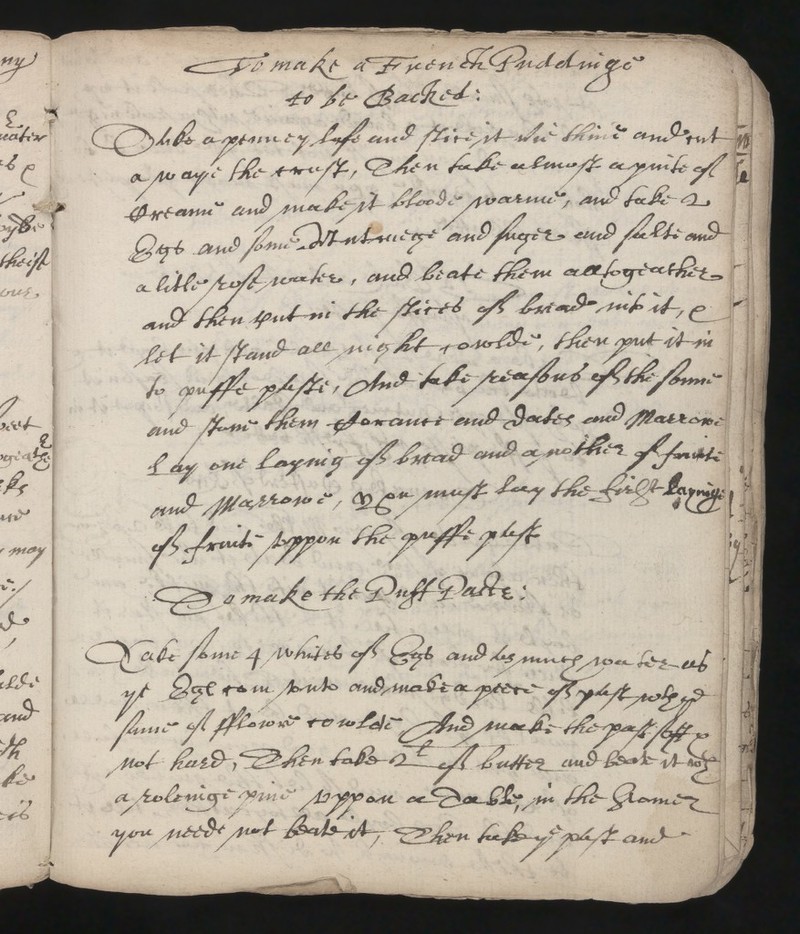 ny
water
To make a French Puddinge
to be Backed:
Take a penney lofe and slice it vie thine and cut
a waye the crust, Then take almost a pinte of
Creame and make it bloode warme, and take 2
Egs and some Nutmege and suger and salte and
a litle rose water, and beate them altogeather
and then put in the slices of bread into it, &
let it stand all night cowlde, then put it in
to puffe paste, And take reasons of the sonne
and stone them Corance and Dates and Marrowe
Lay one laying of bread and another of fruite
and Marrowe, you must lay the first Layinge
of fruite uppon the puffe past
To make the Puft Paste:
Take some 4 whites of Egs and as much water as
ye Egs com unto and make a peece of past wth ye
same of fflowre cowlde And make the past soft &
not hard, Then take 2l of butter and beate it wth
a roleinge pine uppon a Table, in the Somer
you neede not beate it, Then take ye past and
may
and